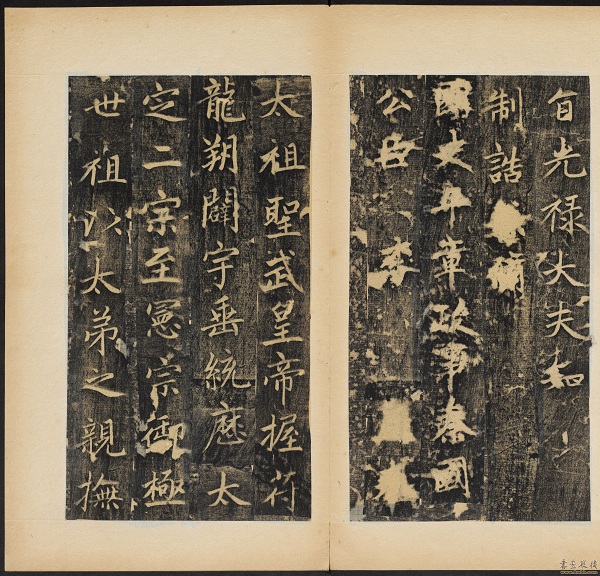 旨光禄大夫知
制誥
平章政事秦國
公臣李
太祖聖武皇帝握符
龍朔闢宇垂統歷太
定二宗至憲宗御極
世祖以太弟之親撫